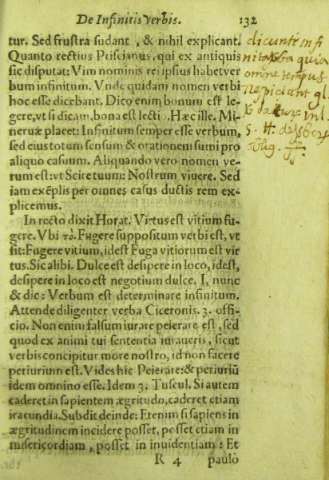 De Infinitis Verbis. 132
tur. Sed frustra sudant, & nihil explicant.
Quanto rectius Priscianus, qui ex antiquis
sic disputat: Vim nominis rei ipsius habet ver
bum infinitum. Vnde quidam nomen verbi
hoc esse dicebant. Dico enim bonum est le-
gere, vt si dicam, bona est lectio. Hæc ille. Mi-
neruæ placet: Infinitum semper esse verbum,
sed eius totum sensum & orationem sumi pro
aliquo casuum. Aliquando vero nomen ve-
rum est: vt Scire tuum: Nostrum viuere. Sed
iam exēplis per omnes casus ductis rem ex-
plicemus.
In recto dixit Horat. Virtus est vitium fu-
gere. Vbi τὸ. Fugere suppositum verbi est, vt
sit: Fugere vitium, idest Fuga vitiorum est vir
tus. Sic alibi. Dulce est desipere in loco, idest,
desipere in loco est negotium dulce. I, nunc
& dic: Verbum est determinare infinitum.
Attende diligenter verba Ciceronis. 3. offi-
cio. Non enim falsum iurare peierare est, sed
quod ex animi tui sententia iuraueris, sicut
verbis concipitur more nostro, id non facere
periurium est. Vides hic Peierare: & periuriū
idem omnino esse. Idem 3. Tuscul. Si autem
caderet in sapientem ægritudo, caderet etiam
iracundia. Subdit deinde: Etenim si sapiens in
ægritudinem incidere posset, posset etiam in
misericordiam, posset in inuidentiam: Et
R 4 paulo
dicunt infi
nita
quia
omne tempus